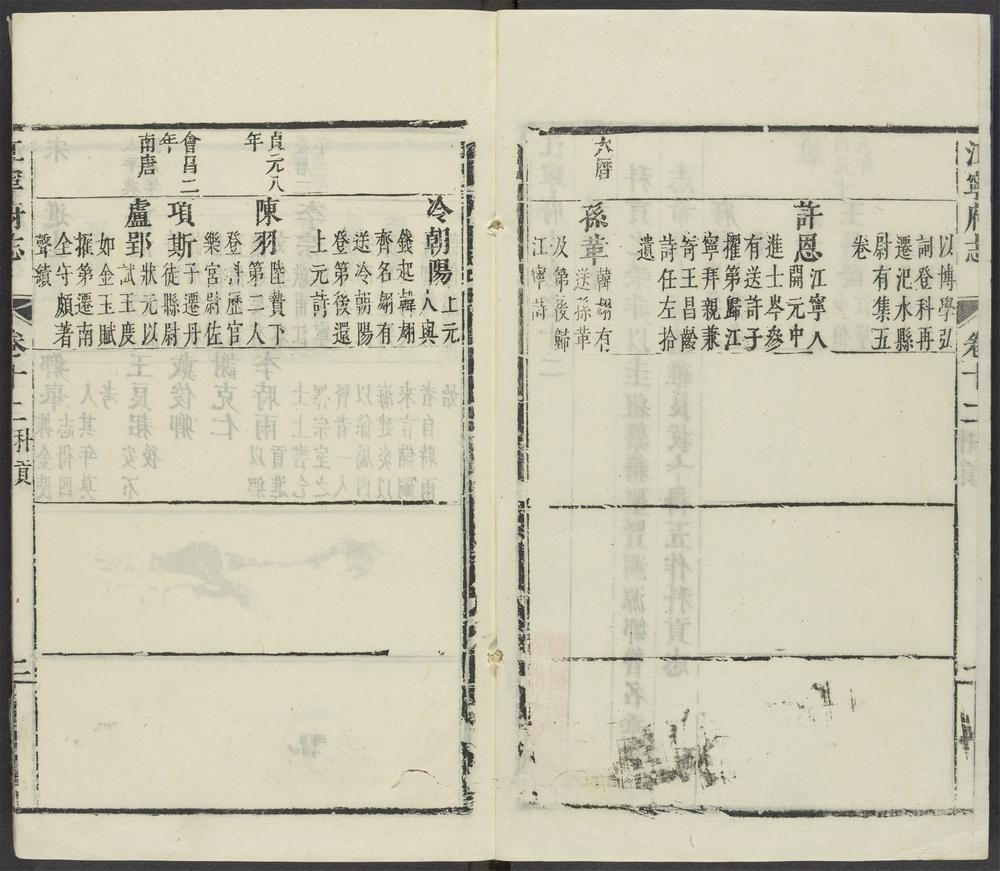 江寧府志
卷十二
科貢
二
以博學弘
詞登科再
遷汜水縣
尉有集五
卷
許恩 江寧人
開元中
進士岑參
有送許子
擢第歸江
寧拜親兼
寄王昌齡
詩任左拾
遺
大曆
孫革 韓翃有
送孫革
及第後歸
江寧詩
冷朝陽 上元
人與
錢起韓翃
齊名翃有
送冷朝陽
登第後還
上元詩
貞元八
年
陳羽 陸贄下
第二人
登科歷官
樂宮尉佐
會昌二
年
項斯 子遷丹
徒縣尉
南唐
盧郢 狀元以
試王度
如金玉賦
擢第遷南
全守頗著
聲績
江寧府志
卷十二
科貢
二